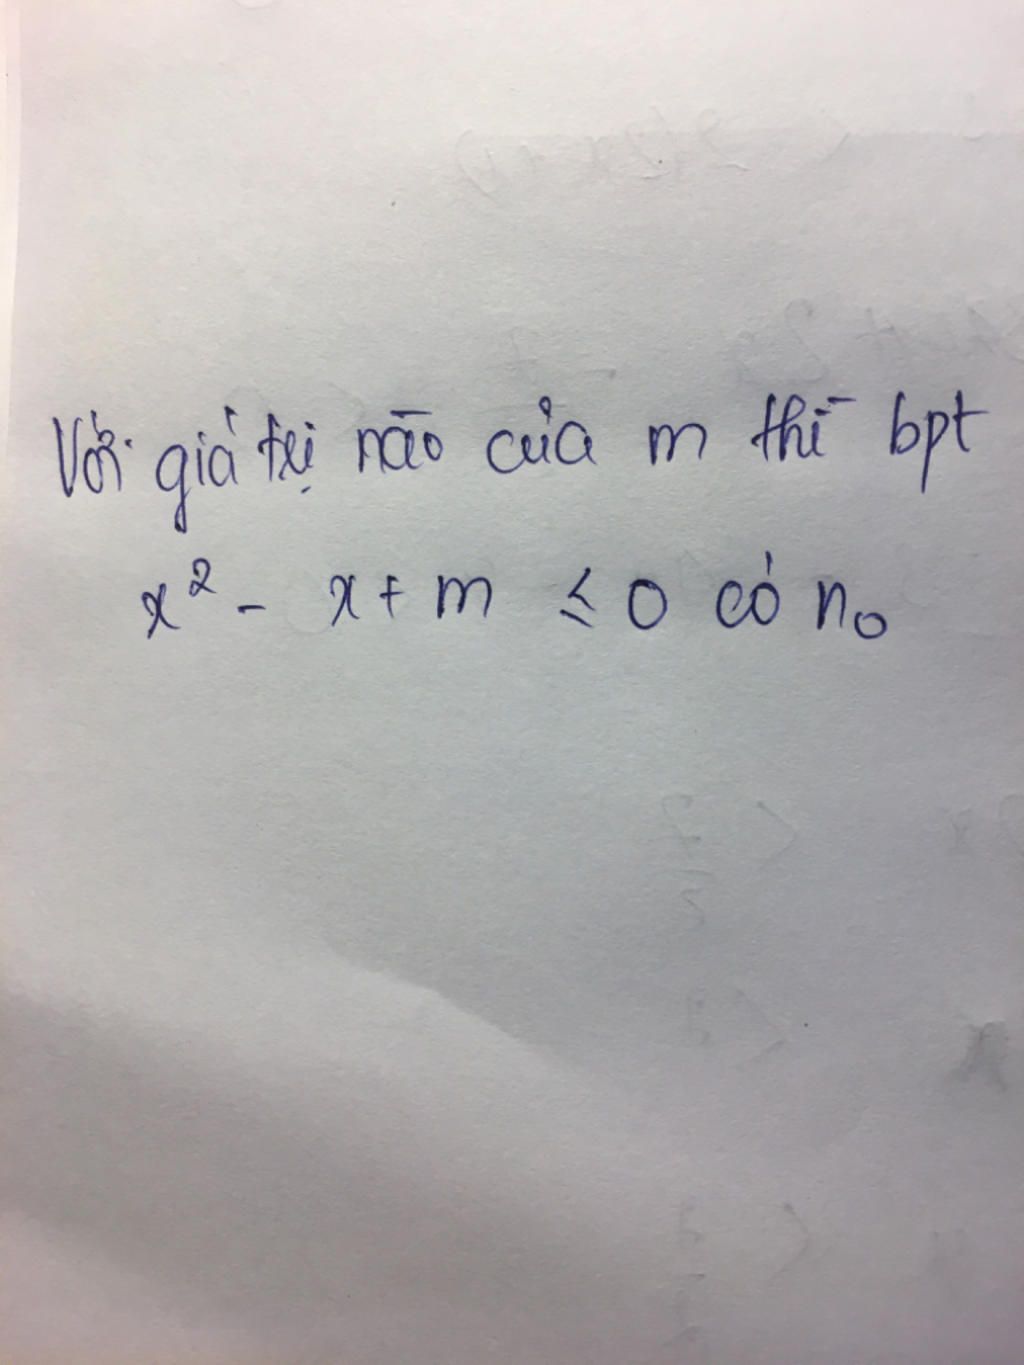 Với giá trị nào của m thì bpt
x² - x + m ≤ 0 có n₀